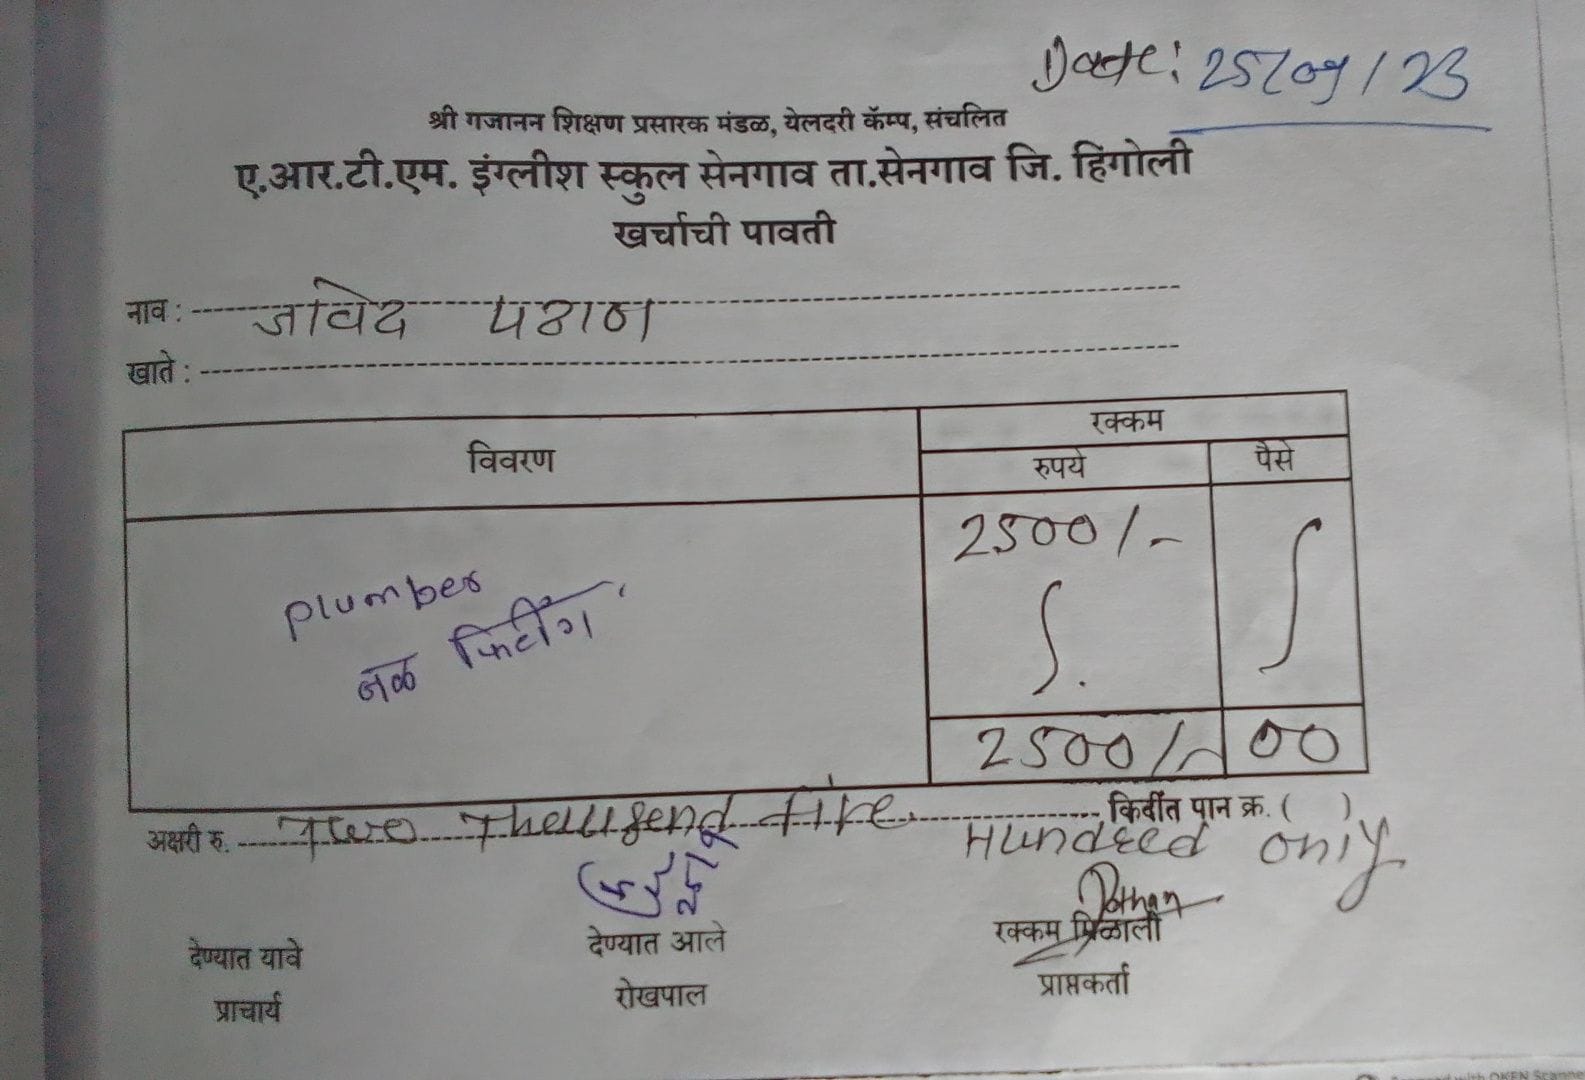 Date: 25/09/23
श्री गजानन शिक्षण प्रसारक मंडळ, येलदरी कॅम्प, संचलित
ए.आर.टी.एम. इंग्लीश स्कुल सेनगाव ता.सेनगाव जि. हिंगोली
खर्चाची पावती
नाव : जावेद पठाण
खाते :
विवरण रक्कम
रुपये पैसे
2500/-
plumber
नळ फिटींग
2500/- 00
अक्षरी रु. Two Thousend five किर्दीत पान क्र. ( )
Hundred only
Pathan
देण्यात यावे देण्यात आले रक्कम मिळाली
प्राचार्य रोखपाल प्राप्तकर्ता